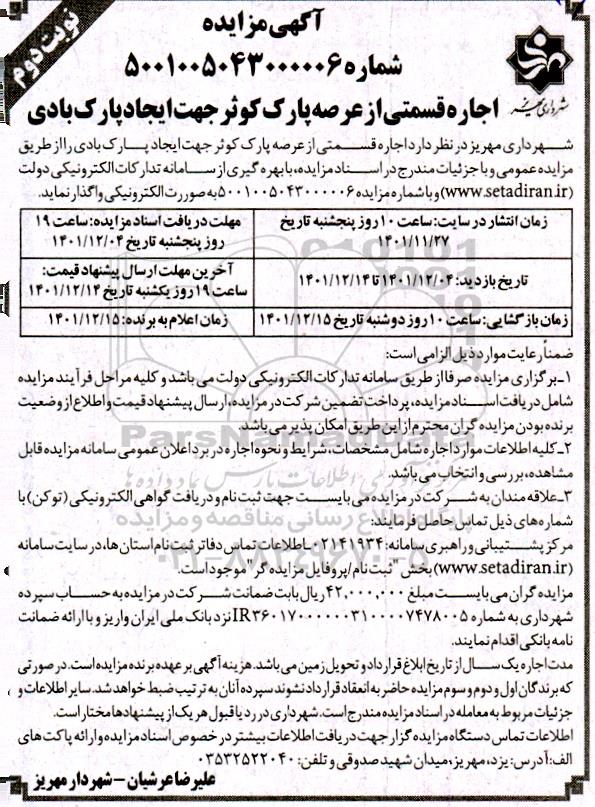 نوبت دوم
آگهی مزایده
شماره ۵۰۰۱۰۰۵۰۴۳۰۰۰۰۰۶
شهرداری مهریز
اجاره قسمتی از عرصه پارک کوثر جهت ایجاد پارک بادی
شهرداری مهریز در نظر دارد اجاره قسمتی از عرصه پارک کوثر جهت ایجاد پارک بادی را از طریق
مزایده عمومی و با جزئیات مندرج در اسناد مزایده، با بهره گیری از سامانه تدارکات الکترونیکی دولت
(www.setadiran.ir) و با شماره مزایده ۵۰۰۱۰۰۵۰۴۳۰۰۰۰۰۶ به صورت الکترونیکی واگذار نماید.
زمان انتشار در سایت: ساعت ۱۰ روز پنجشنبه تاریخ ۱۴۰۱/۱۱/۲۷
مهلت دریافت اسناد مزایده: ساعت ۱۹ روز پنجشنبه تاریخ ۱۴۰۱/۱۲/۰۴
تاریخ بازدید: ۱۴۰۱/۱۲/۰۴ تا ۱۴۰۱/۱۲/۱۴
آخرین مهلت ارسال پیشنهاد قیمت: ساعت ۱۹ روز یکشنبه تاریخ ۱۴۰۱/۱۲/۱۴
زمان بازگشایی: ساعت ۱۰ روز دوشنبه تاریخ ۱۴۰۱/۱۲/۱۵
زمان اعلام به برنده: ۱۴۰۱/۱۲/۱۵
ضمناً رعایت موارد ذیل الزامی است:
۱-برگزاری مزایده صرفا از طریق سامانه تدارکات الکترونیکی دولت می باشد و کلیه مراحل فرآیند مزایده
شامل دریافت اسناد مزایده، پرداخت تضمین شرکت در مزایده، ارسال پیشنهاد قیمت و اطلاع از وضعیت
برنده بودن مزایده گران محترم از این طریق امکان پذیر می باشد.
۲-کلیه اطلاعات موارد اجاره شامل مشخصات، شرایط و نحوه اجاره در برد اعلان عمومی سامانه مزایده قابل
مشاهده، بررسی و انتخاب می باشد.
۳-علاقه مندان به شرکت در مزایده می بایست جهت ثبت نام و دریافت گواهی الکترونیکی (توکن) با
شماره های ذیل تماس حاصل فرمایند:
مرکز پشتیبانی و راهبری سامانه: ۰۲۱۴۱۹۳۴- اطلاعات تماس دفاتر ثبت نام استان ها، در سایت سامانه
(www.setadiran.ir) بخش "ثبت نام/پروفایل مزایده گر" موجود است.
مزایده گران می بایست مبلغ ۴۲,۰۰۰,۰۰۰ ریال بابت ضمانت شرکت در مزایده به حساب سپرده
شهرداری به شماره IR نزد بانک ملی ایران واریز و یا ارائه ضمانت
نامه بانکی اقدام نمایند.
مدت اجاره یک سال از تاریخ ابلاغ قرارداد و تحویل زمین می باشد. هزینه آگهی بر عهده برنده مزایده است. در صورتی
که برندگان اول و دوم و سوم مزایده حاضر به انعقاد قرارداد نشوند سپرده آنان به ترتیب ضبط خواهد شد. سایر اطلاعات و
جزئیات مربوط به معامله در اسناد مزایده مندرج است. شهرداری در رد یا قبول هر یک از پیشنهادها مختار است.
اطلاعات تماس دستگاه مزایده گزار جهت دریافت اطلاعات بیشتر در خصوص اسناد مزایده و ارائه پاکت های
الف: آدرس: یزد، مهریز، میدان شهید صدوقی و تلفن: ۰۳۵۳۲۵۲۲۰۴۰
علیرضا عرشیان - شهردار مهریز
ParsNamadData
پایگاه اطلاع رسانی مناقصه و مزایده